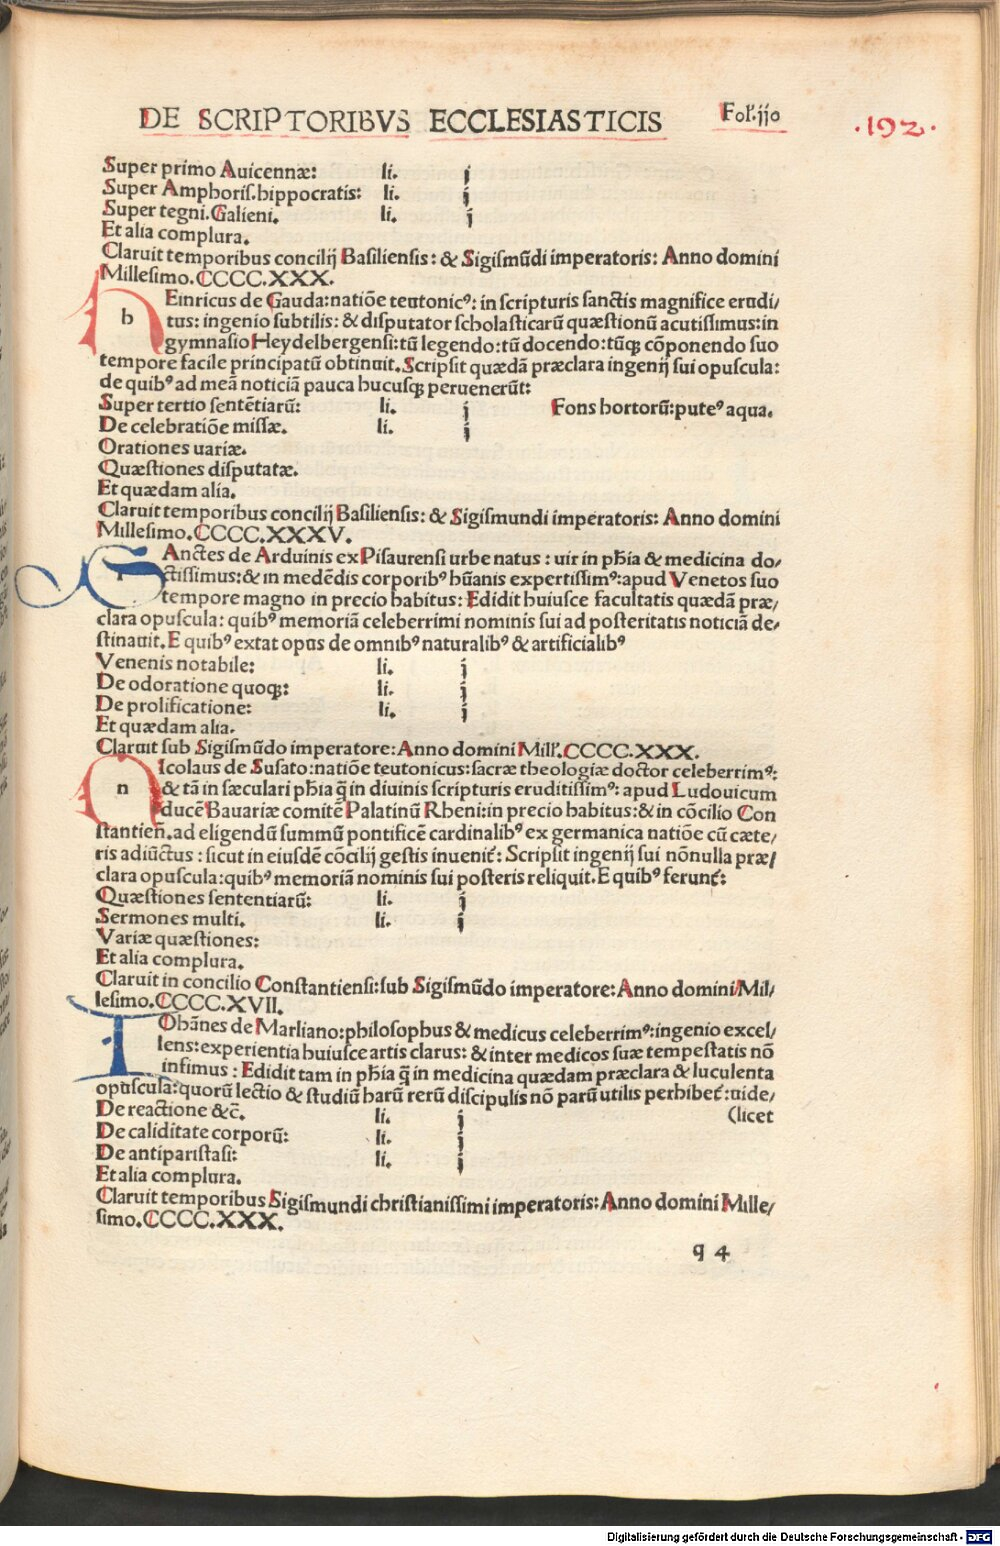 DE SCRIPTORIBVS ECCLESIASTICIS Fol. jjo
.192.
Super primo Auicennæ: li. j
Super Amphoriſ. hippocratis: li. j
Super tegni. Galieni. li. j
Et alia complura.
Claruit temporibus concilij Baſilienſis: & Sigiſmũdi imperatoris: Anno domini
Milleſimo. CCCC. XXX.
h Einricus de Gauda: natiõe teutonicꝰ: in ſcripturis ſanctis magnifice erudi/
tus: ingenio ſubtilis: & diſputator ſcholaſticarũ quæſtionũ acutiſſimus: in
gymnaſio Heydelbergenſi: tũ legendo: tũ docendo: tũq; cõponendo ſuo
tempore facile principatũ obtinuit. Scripſit quædã præclara ingenij ſui opuſcula:
de quibꝰ ad meã noticiã pauca hucuſq; peruenerũt:
Super tertio ſentẽtiarũ: li. j Fons hortorũ: puteꝰ aqua.
De celebratiõe miſſæ. li. j
Orationes uariæ.
Quæſtiones diſputatæ.
Et quædam alia.
Claruit temporibus concilij Baſilienſis: & Sigiſmundi imperatoris: Anno domini
Milleſimo. CCCC. XXXV.
Anctes de Arduinis ex Piſaurenſi urbe natus: uir in pħia & medicina do/
ctiſſimus: & in medẽdis corporibꝰ hũanis expertiſſimꝰ: apud Venetos ſuo
tempore magno in precio habitus: Edidit huiuſce facultatis quædã præ/
clara opuſcula: quibꝰ memoriã celeberrimi nominis ſui ad poſteritatis noticiã de/
ſtinauit. E quibꝰ extat opus de omnibꝰ naturalibꝰ & artificialibꝰ
Venenis notabile: li. j
De odoratione quoq;: li. j
De prolificatione: li. j
Et quædam alia.
Claruit ſub Sigiſmũdo imperatore: Anno domini Mill'. CCCC. XXX.
n Icolaus de Suſato: natiõe teutonicus: ſacræ theologiæ doctor celeberrimꝰ:
& tã in ſæculari pħia q̃ in diuinis ſcripturis eruditiſſimꝰ: apud Ludouicum
ducẽ Bauariæ comitẽ Palatinũ Rheni: in precio habitus: & in cõcilio Con
ſtantieñ. ad eligendũ ſummũ pontificẽ cardinalibꝰ ex germanica natiõe cũ cæte/
ris adiũctus: ſicut in eiuſdẽ cõcilij geſtis inuenit̃: Scripſit ingenij ſui nõnulla præ/
clara opuſcula: quibꝰ memoriã nominis ſui poſteris reliquit. E quibꝰ ferunt̃:
Quæſtiones ſententiarũ: li. j
Sermones multi. li. j
Variæ quæſtiones:
Et alia complura.
Claruit in concilio Conſtantienſi: ſub Sigiſmũdo imperatore: Anno domini Mil/
leſimo. CCCC. XVII.
I Ohãnes de Marliano: philoſophus & medicus celeberrimꝰ: ingenio excel/
lens: experientia huiuſce artis clarus: & inter medicos ſuæ tempeſtatis nõ
infimus: Edidit tam in pħia q̃ in medicina quædam præclara & luculenta
opuſcula: quorũ lectio & ſtudiũ harũ rerũ diſcipulis nõ parũ utilis perhibet̃: uide/
De reactione &c̃. li. j (licet
De caliditate corporũ: li. j
De antipariſtaſi: li. j
Et alia complura.
Claruit temporibus Sigiſmundi chriſtianiſſimi imperatoris: Anno domini Mille/
ſimo. CCCC. XXX.
q 4
Digitalisierung gefördert durch die Deutsche Forschungsgemeinschaft - DFG